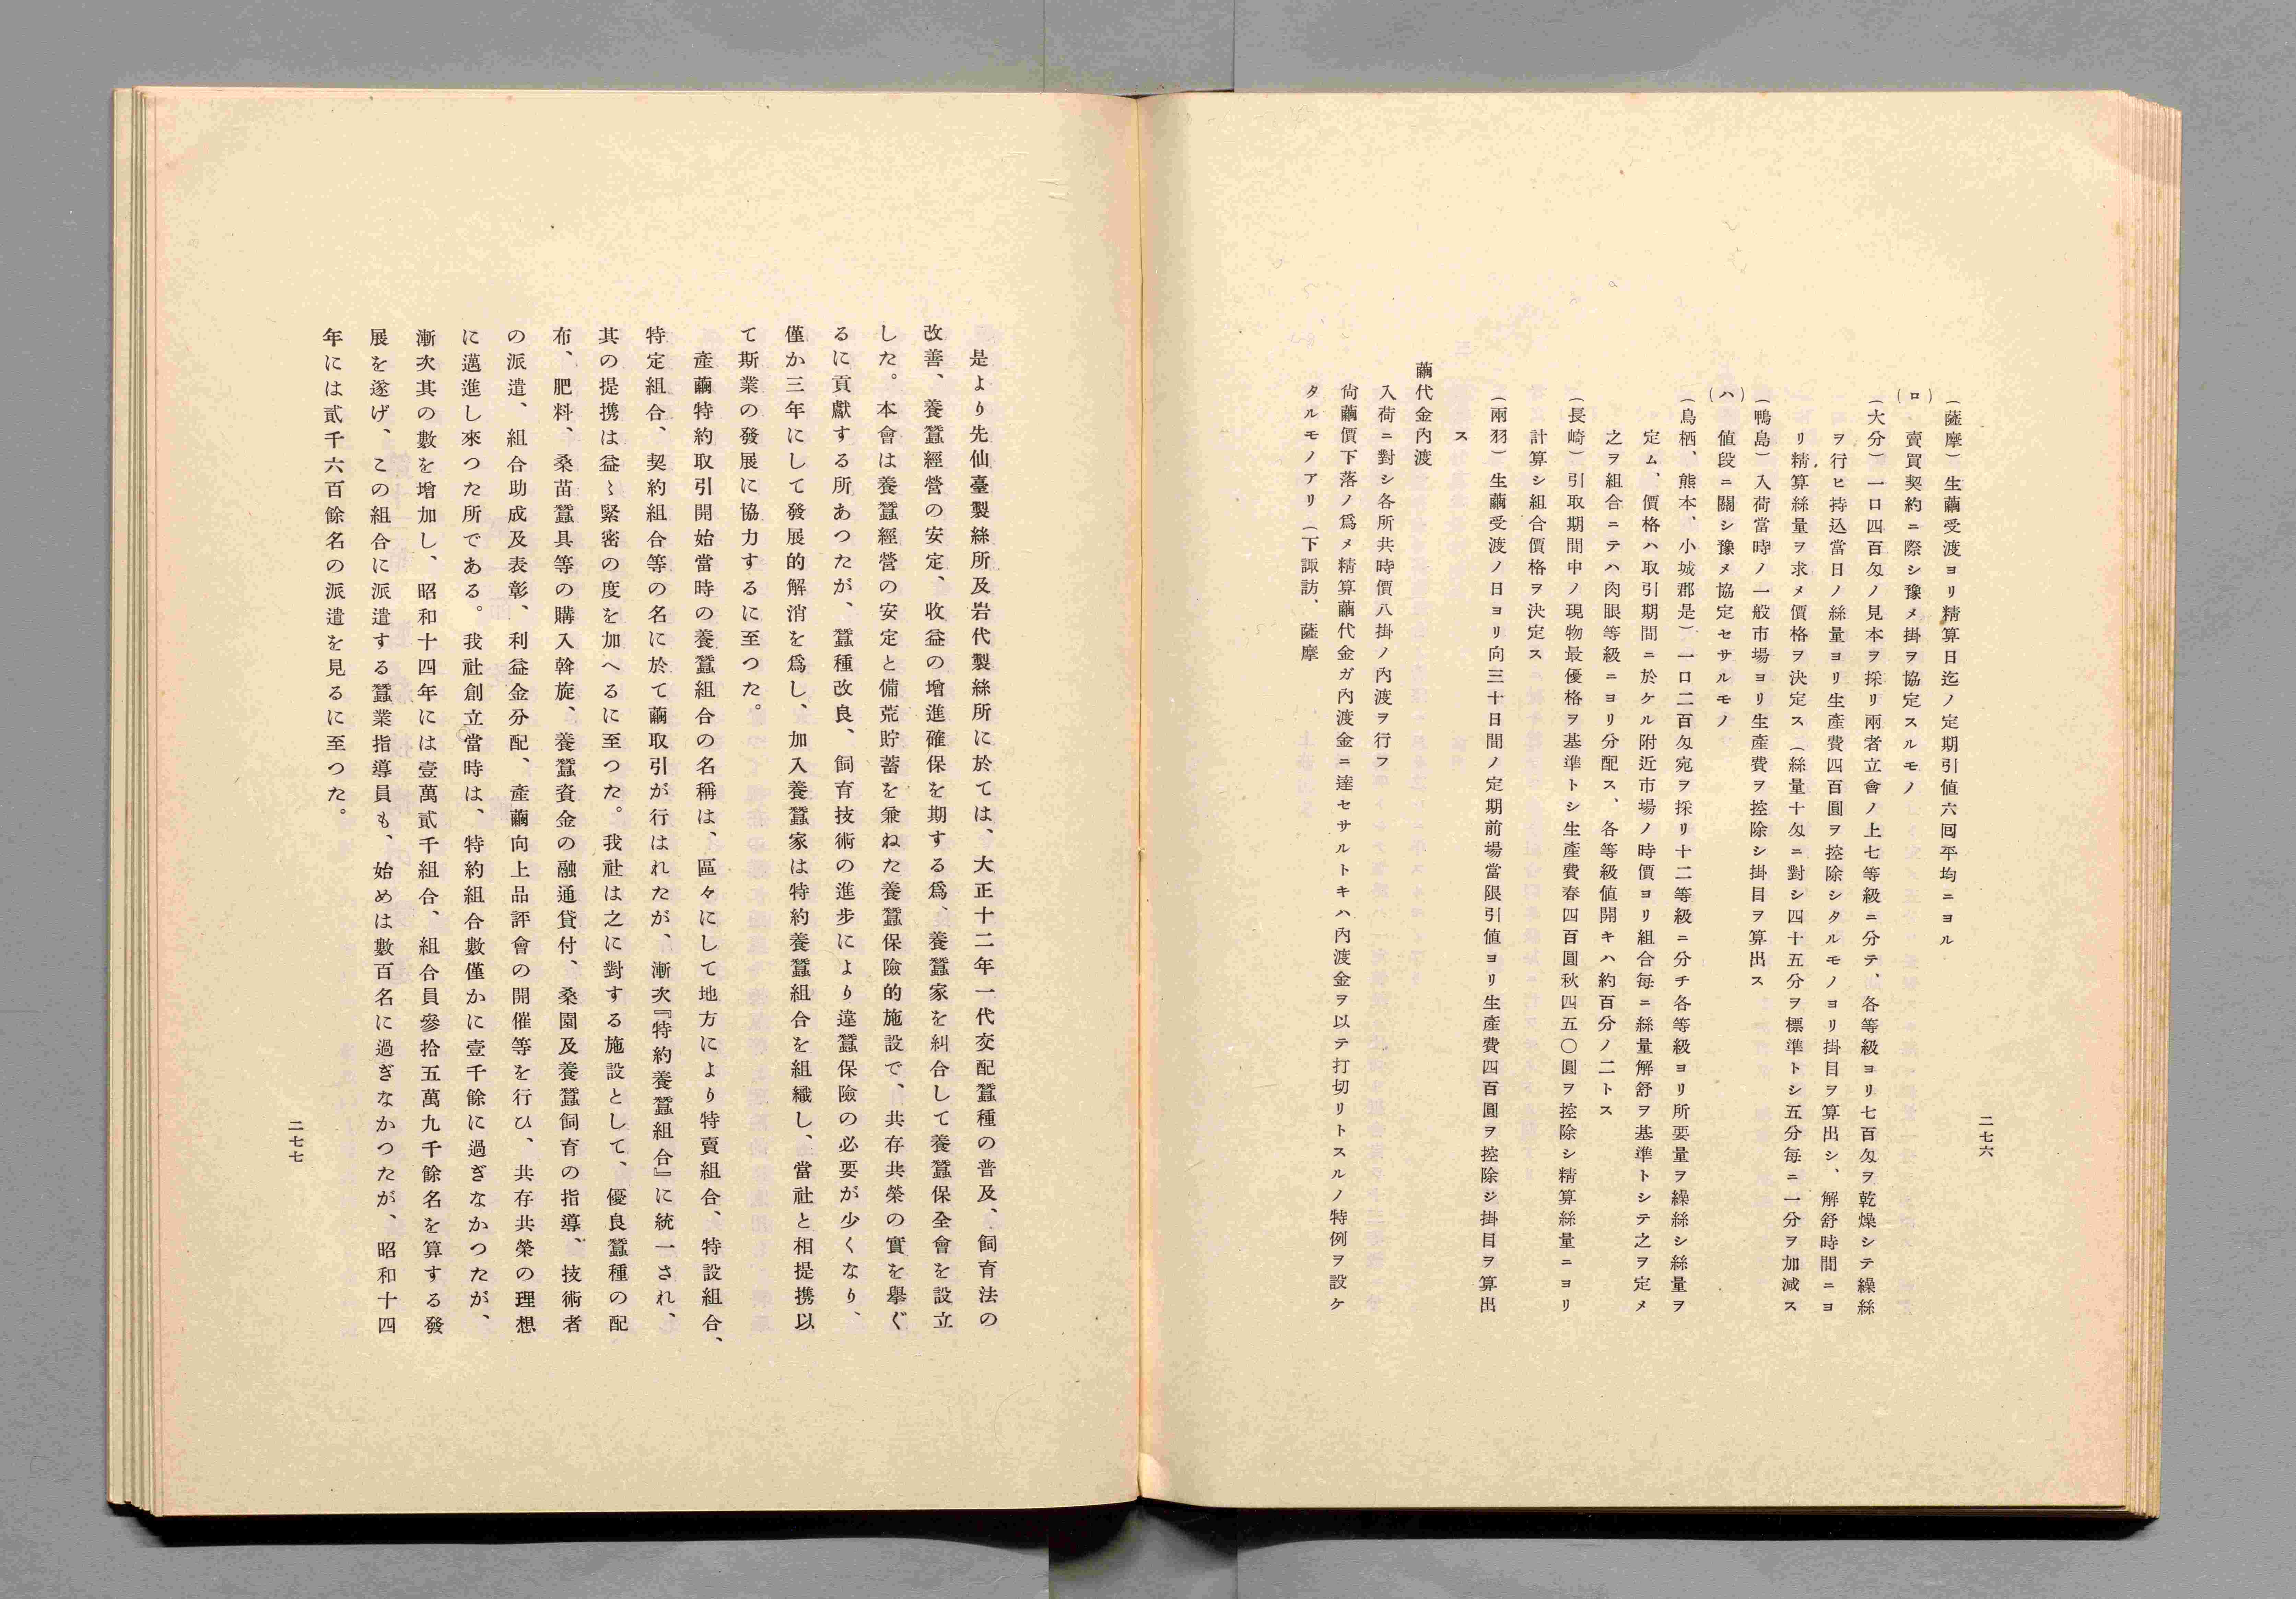 二七六
（薩摩）生繭受渡ヨリ精算日迄ノ定期引値六囘平均ニヨル
（ロ）賣買契約ニ際シ豫メ掛ヲ協定スルモノ
（大分）一口四百匁ノ見本ヲ採リ兩者立會ノ上七等級ニ分テ、各等級ヨリ七百匁ヲ乾燥シテ繰絲
ヲ行ヒ持込當日ノ絲量ヨリ生產費四百圓ヲ控除シタルモノヨリ掛目ヲ算出シ、解舒時間ニヨ
リ精算絲量ヲ求メ價格ヲ決定ス（絲量十匁ニ對シ四十五分ヲ標準トシ五分每ニ一分ヲ加減ス
（鴨島）入荷當時ノ一般市場ヨリ生產費ヲ控除シ掛目ヲ算出ス
（ハ）値段ニ關シ豫メ協定セサルモノ
（鳥栖、熊本、小城郡是）一口二百匁宛ヲ採リ十二等級ニ分チ各等級ヨリ所要量ヲ繰絲シ絲量ヲ
定ム、價格ハ取引期間ニ於ケル附近市場ノ時價ヨリ組合每ニ絲量解舒ヲ基準トシテ之ヲ定メ
之ヲ組合ニテハ肉眼等級ニヨリ分配ス、各等級値開キハ約百分ノ二トス
（長崎）引取期間中ノ現物最優格ヲ基準トシ生產費春四百圓秋四五〇圓ヲ控除シ精算絲量ニヨリ
計算シ組合價格ヲ決定ス
（兩羽）生繭受渡ノ日ヨリ向三十日間ノ定期前場當限引値ヨリ生產費四百圓ヲ控除ジ掛目ヲ算出
ス
繭代金內渡
入荷ニ對シ各所共時價八掛ノ內渡ヲ行フ
尙繭價下落ノ爲メ精算繭代金ガ內渡金ニ達セサルトキハ內渡金ヲ以テ打切リトスルノ特例ヲ設ケ
タルモノアリ（下諏訪、薩摩
是より先仙臺製絲所及岩代製絲所に於ては、大正十二年一代交配蠶種の普及、飼育法の
改善、養蠶經營の安定、收益の增進確保を期する爲、養蠶家を糾合して養蠶保全會を設立
した。本會は養蠶經營の安定と備荒貯蓄を兼ねた養蠶保險的施設で、共存共榮の實を擧ぐ
るに貢獻する所あつたが、蠶種改良、飼育技術の進步により違蠶保險の必要が少くなり、
僅か三年にして發展的解消を爲し、加入養蠶家は特約養蠶組合を組織し、當社と相提携以
て斯業の發展に協力するに至つた。
產繭特約取引開始當時の養蠶組合の名稱は、區々にして地方により特賣組合、特設組合、
特定組合、契約組合等の名に於て繭取引が行はれたが、漸次『特約養蠶組合』に統一され、
其の提携は益〻緊密の度を加へるに至つた。我社は之に對する施設として、優良蠶種の配
布、肥料、桑苗蠶具等の購入斡旋、養蠶資金の融通貸付、桑園及養蠶飼育の指導、技術者
の派遣、組合助成及表彰、利益金分配、產繭向上品評會の開催等を行ひ、共存共榮の理想
に邁進し來つた所である。我社創立當時は、特約組合數僅かに壹千餘に過ぎなかつたが、
漸次其の數を增加し、昭和十四年には壹萬貳千組合、組合員參拾五萬九千餘名を算する發
展を遂げ、この組合に派遣する蠶業指導員も、始めは數百名に過ぎなかつたが、昭和十四
年には貳千六百餘名の派遣を見るに至つた。
二七七